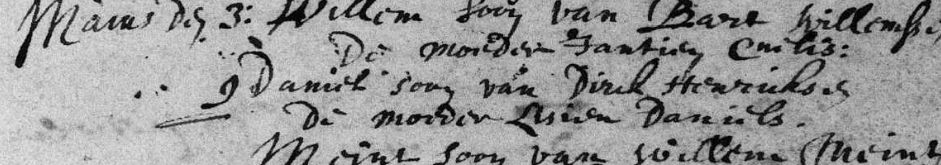 Maius den 3: Willem soon van Bart Willemse
De moeder Jantien Cnelis:
9 Daniel soon van Dirck Henrickse
De moeder Lysien Daniels.
Meint soon van Willem Meint